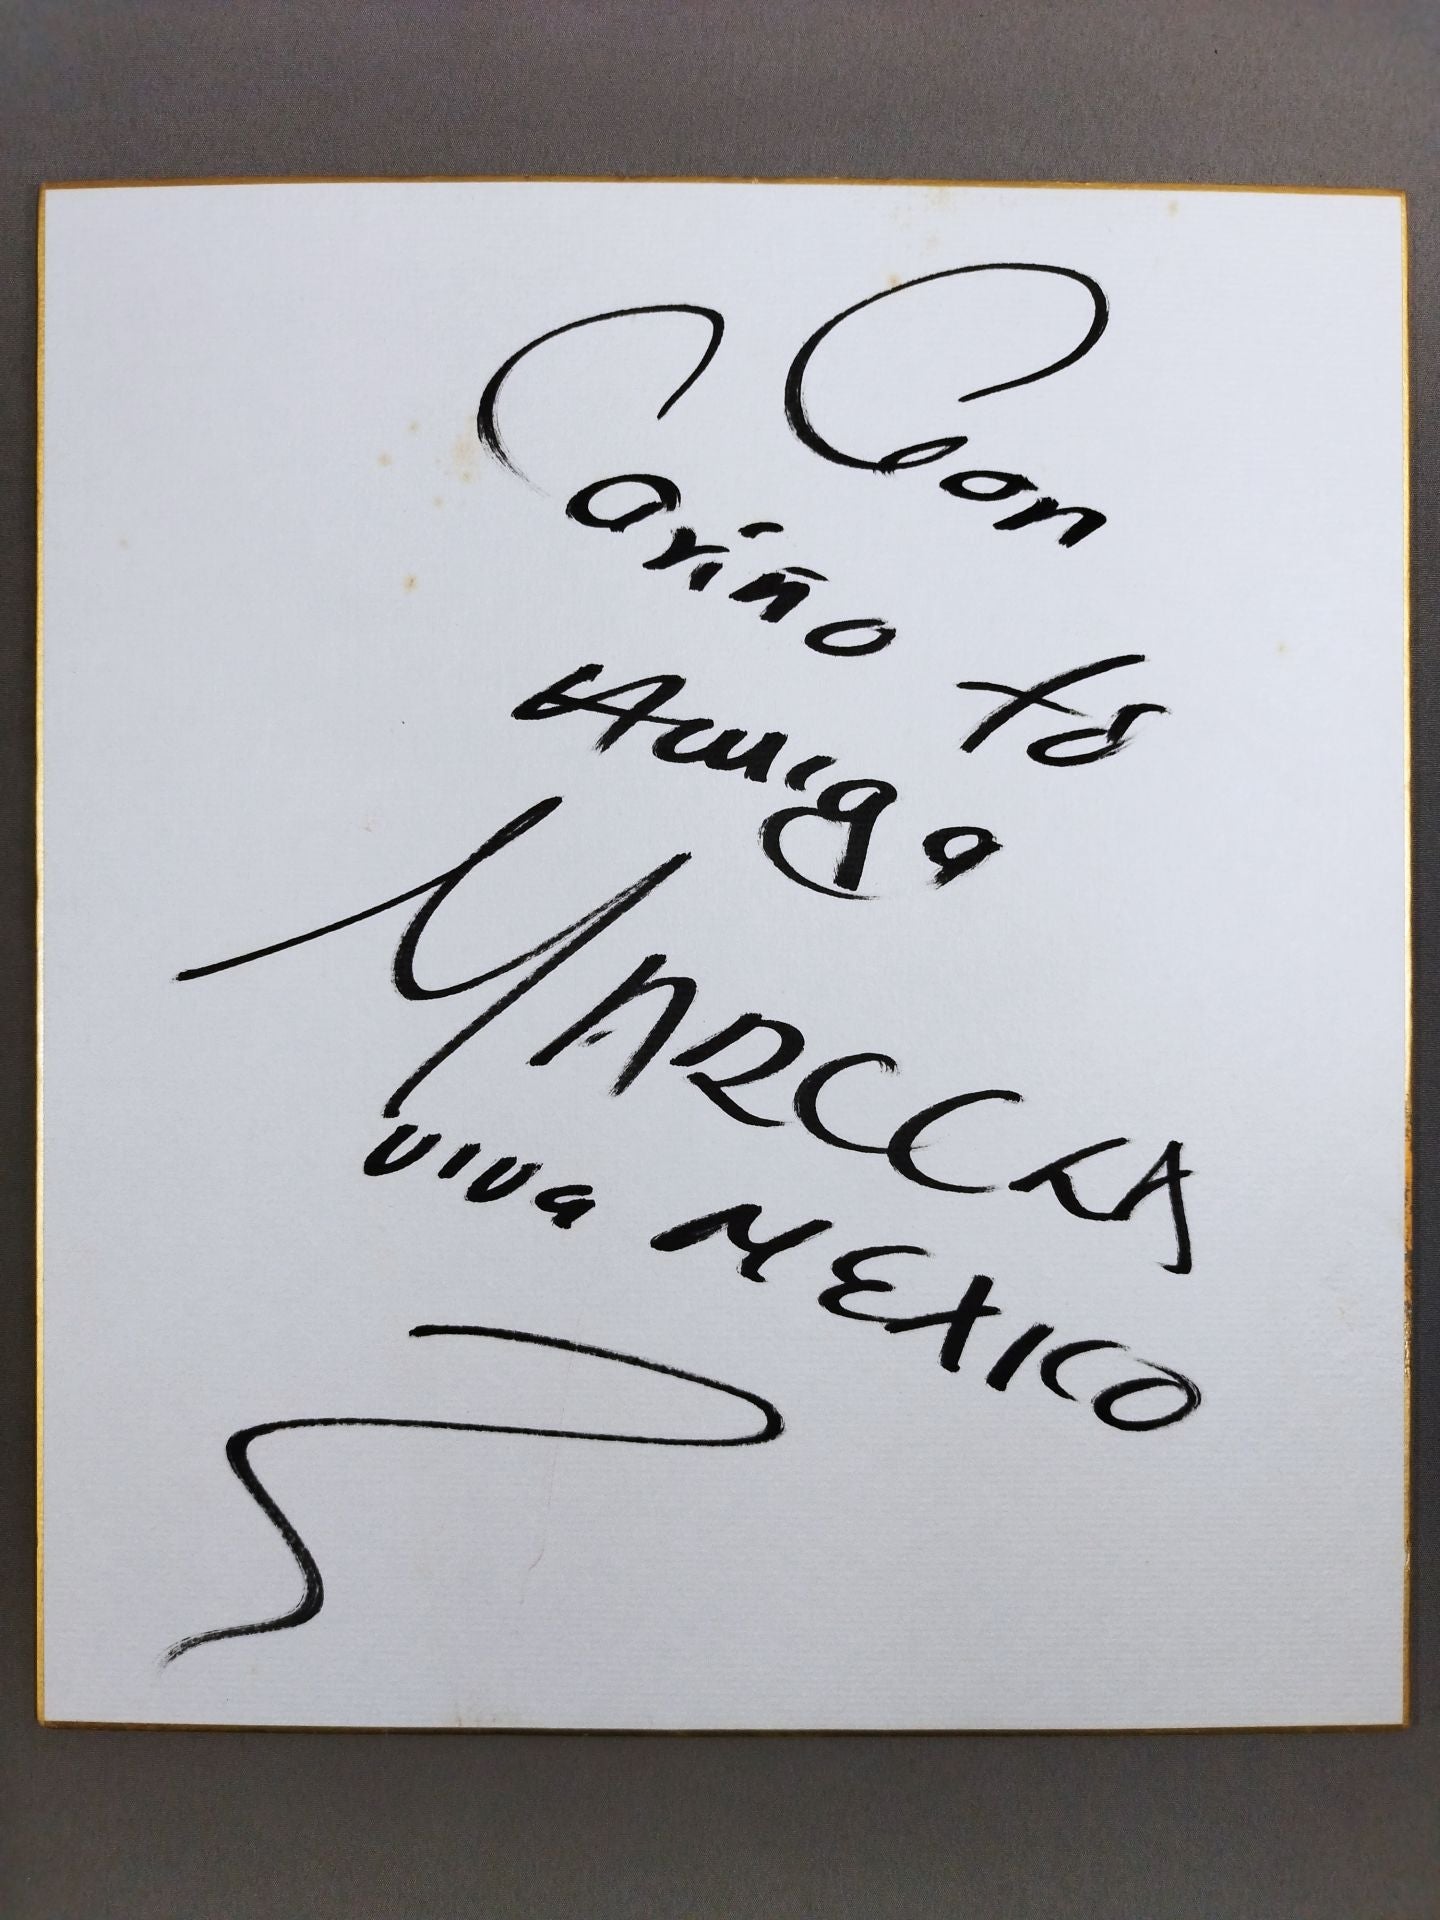 Con
Cariño tu
Amiga
MARCELA
viva MEXICO